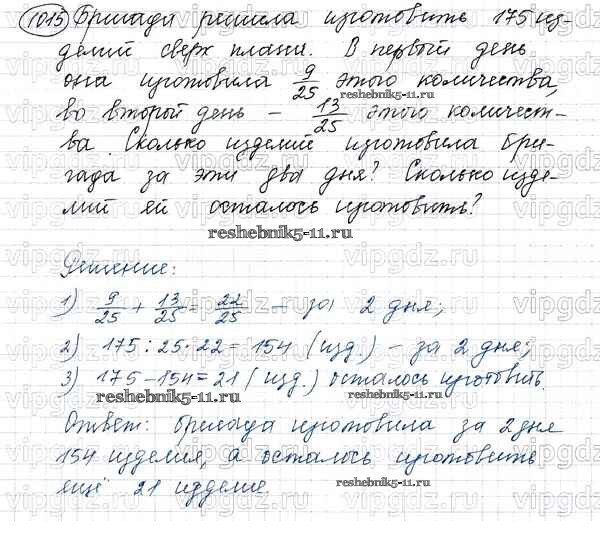 1015 Бригада решила изготовить 175 из-
делий сверх плана. В первый день
она изготовила 9/25 этого количества,
во второй день – 13/25 этого количест-
ва. Сколько изделий изготовила бри-
гада за эти два дня? Сколько изде-
лий ей осталось изготовить?
reshebnik5-11.ru
Решение:
1) 9/25 + 13/25 = 22/25 – за 2 дня;
2) 175 : 25 · 22 = 154 (изд.) – за 2 дня;
3) 175 – 154 = 21 (изд.) осталось изготовить.
reshebnik5-11.ru reshebnik5-11.ru
Ответ: бригада изготовила за 2 дня
154 изделия, а осталось изготовить
ещё 21 изделие.
reshebnik5-11.ru
vipgdz.ru